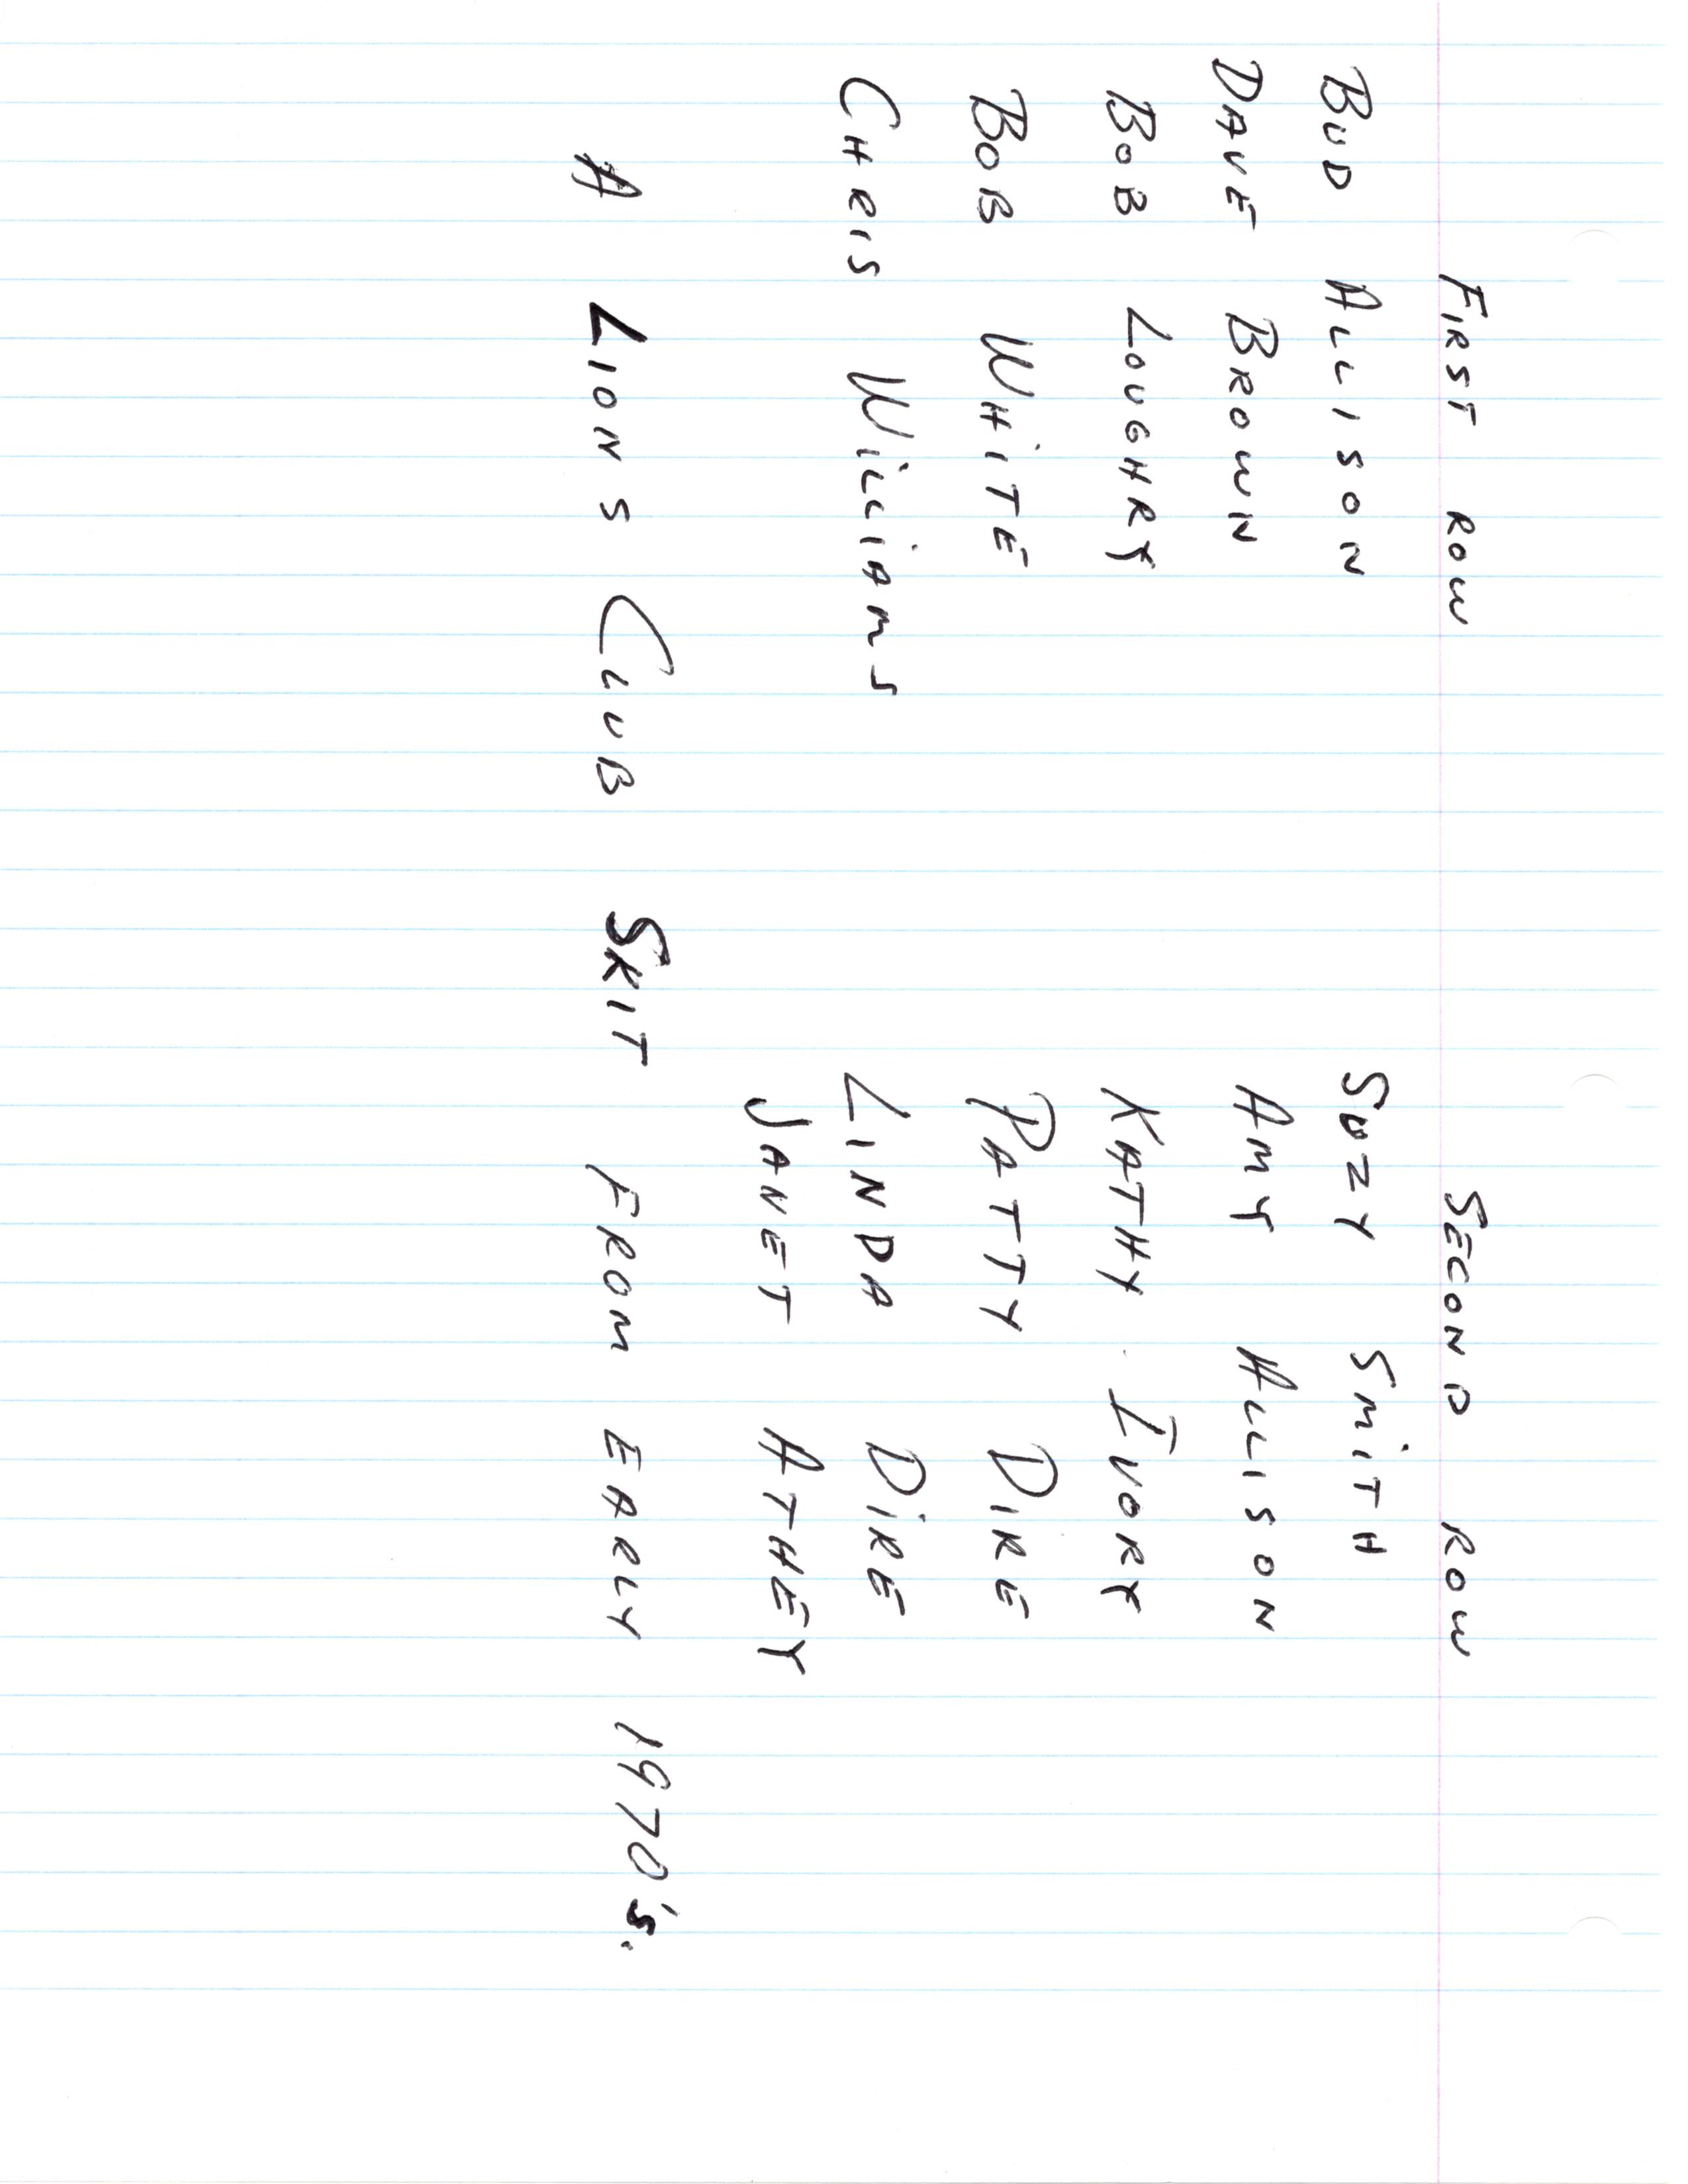 FIRST ROW SECOND ROW
BUD ALLISON SUZY SMITH
DAVE BROWN AMY ALLISON
BOB LOUGHRY KATHY IVORY
BOB WHITE PATTY DIRE
CHRIS WILLIAMS LINDA DIRE
JANET ATHEY
A LIONS CLUB SKIT FROM EARLY 1970's.